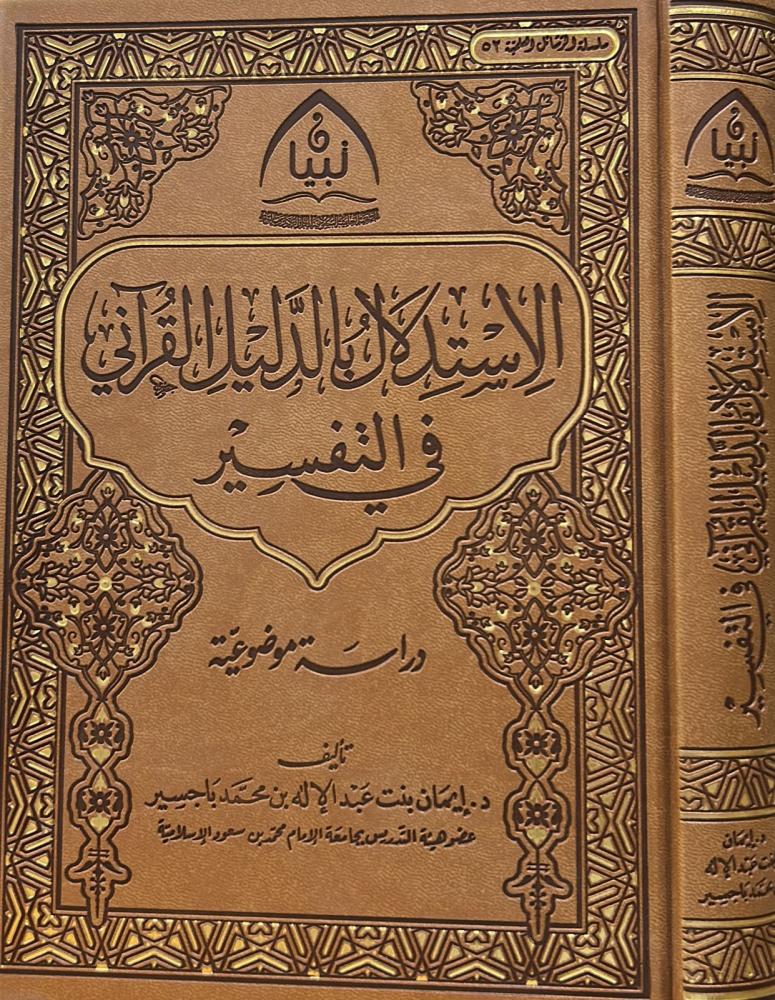 سلسلة الرسائل العلمية ٥٢
تبيان
الاِسْتِدْلَالُ بِالدَّلِيْلِ القُرْآنِي
في التَّفْسِيْرِ
دراسَة موضوعيَّة
تأليف
د. إيمَان بنت عَبْد الإله بن محمَّد بَاجسِير
عضو هيئة التدريس بجامعة الإمام محمّد بن سعود الإسلاميّة
تبيان
الاِسْتِدْلَالُ بِالدَّلِيْلِ القُرْآنِي في التَّفْسِيْرِ
د. إيمَان
بنت عَبْد الإله
بن محمَّد بَاجسِير